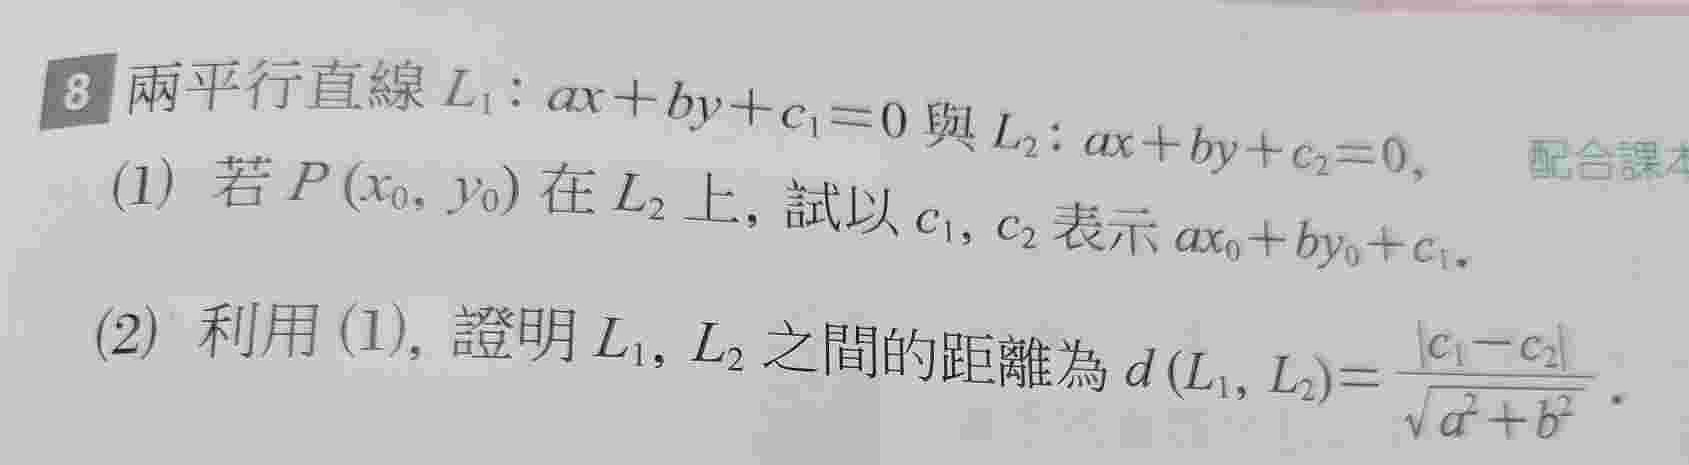 8 兩平行直線 L₁：ax＋by＋c₁＝0 與 L₂：ax＋by＋c₂＝0, 配合課本
(1) 若 P (x₀, y₀) 在 L₂ 上, 試以 c₁, c₂ 表示 ax₀＋by₀＋c₁.
(2) 利用 (1), 證明 L₁, L₂ 之間的距離為 d (L₁, L₂)＝|c₁－c₂|/√(a²＋b²).